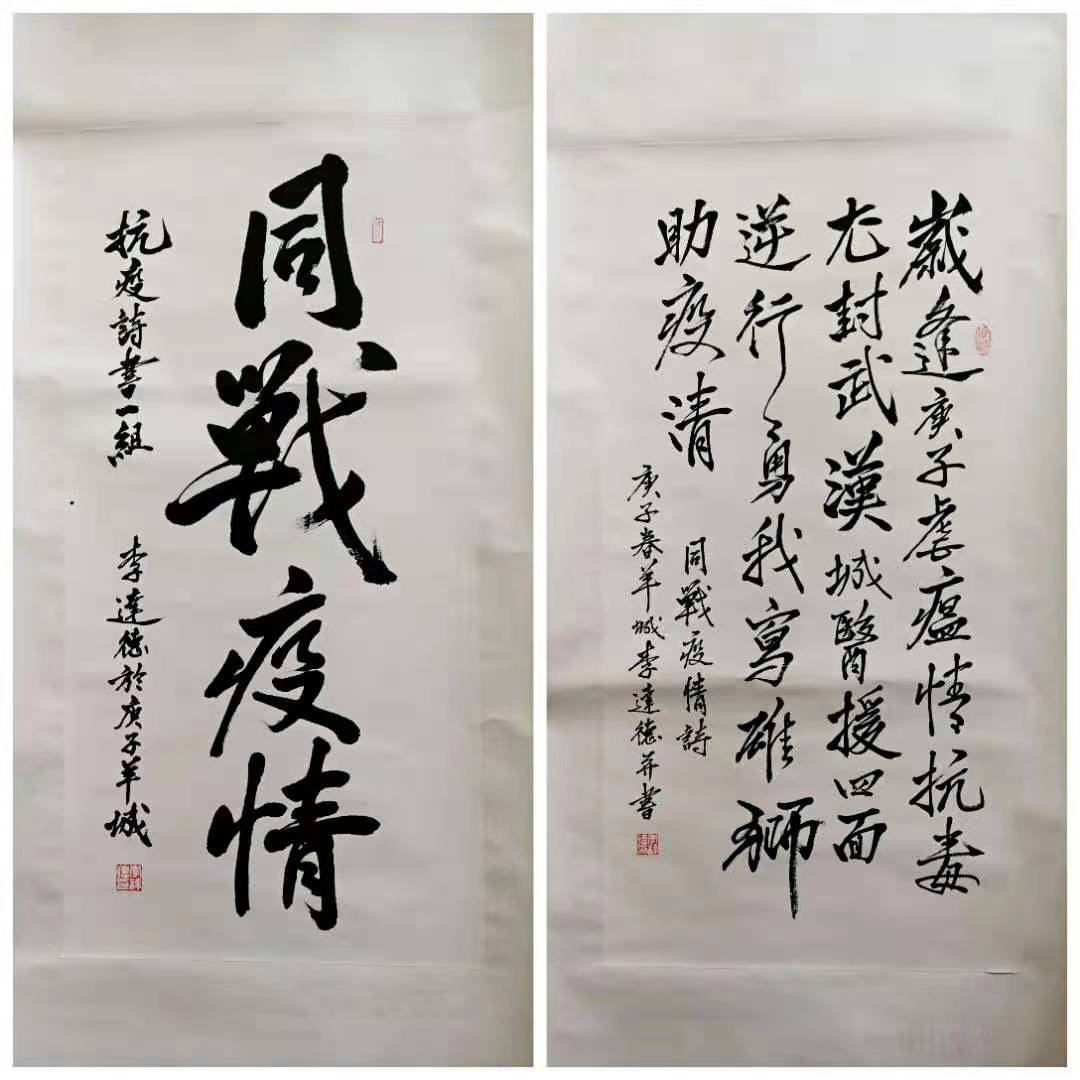 同戰疫情
抗疫詩書一組 李達德於庚子羊城
歲逢庚子虐瘟情抗毒
尤封武漢城醫援四面
逆行勇我寫雄獅
助疫清
同戰疫情詩
庚子春羊城李達德并書